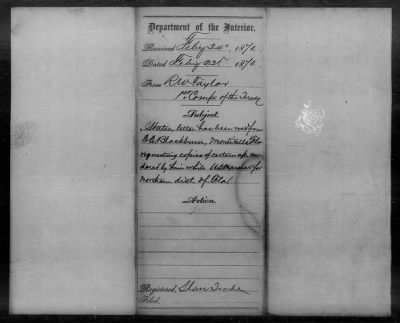 Department of the Interior.
Received Feby 24" 1870.
Dated Feby 22d 1870.
From R W Taylor
1st Comp. of the Treasy
Subject.
States, letter has been recd from
Blackburn, Monticello Fla
requesting copies of certain
by him while US Marshal for
Northern dist. of Fla.
Action.
Registered,
Filed,